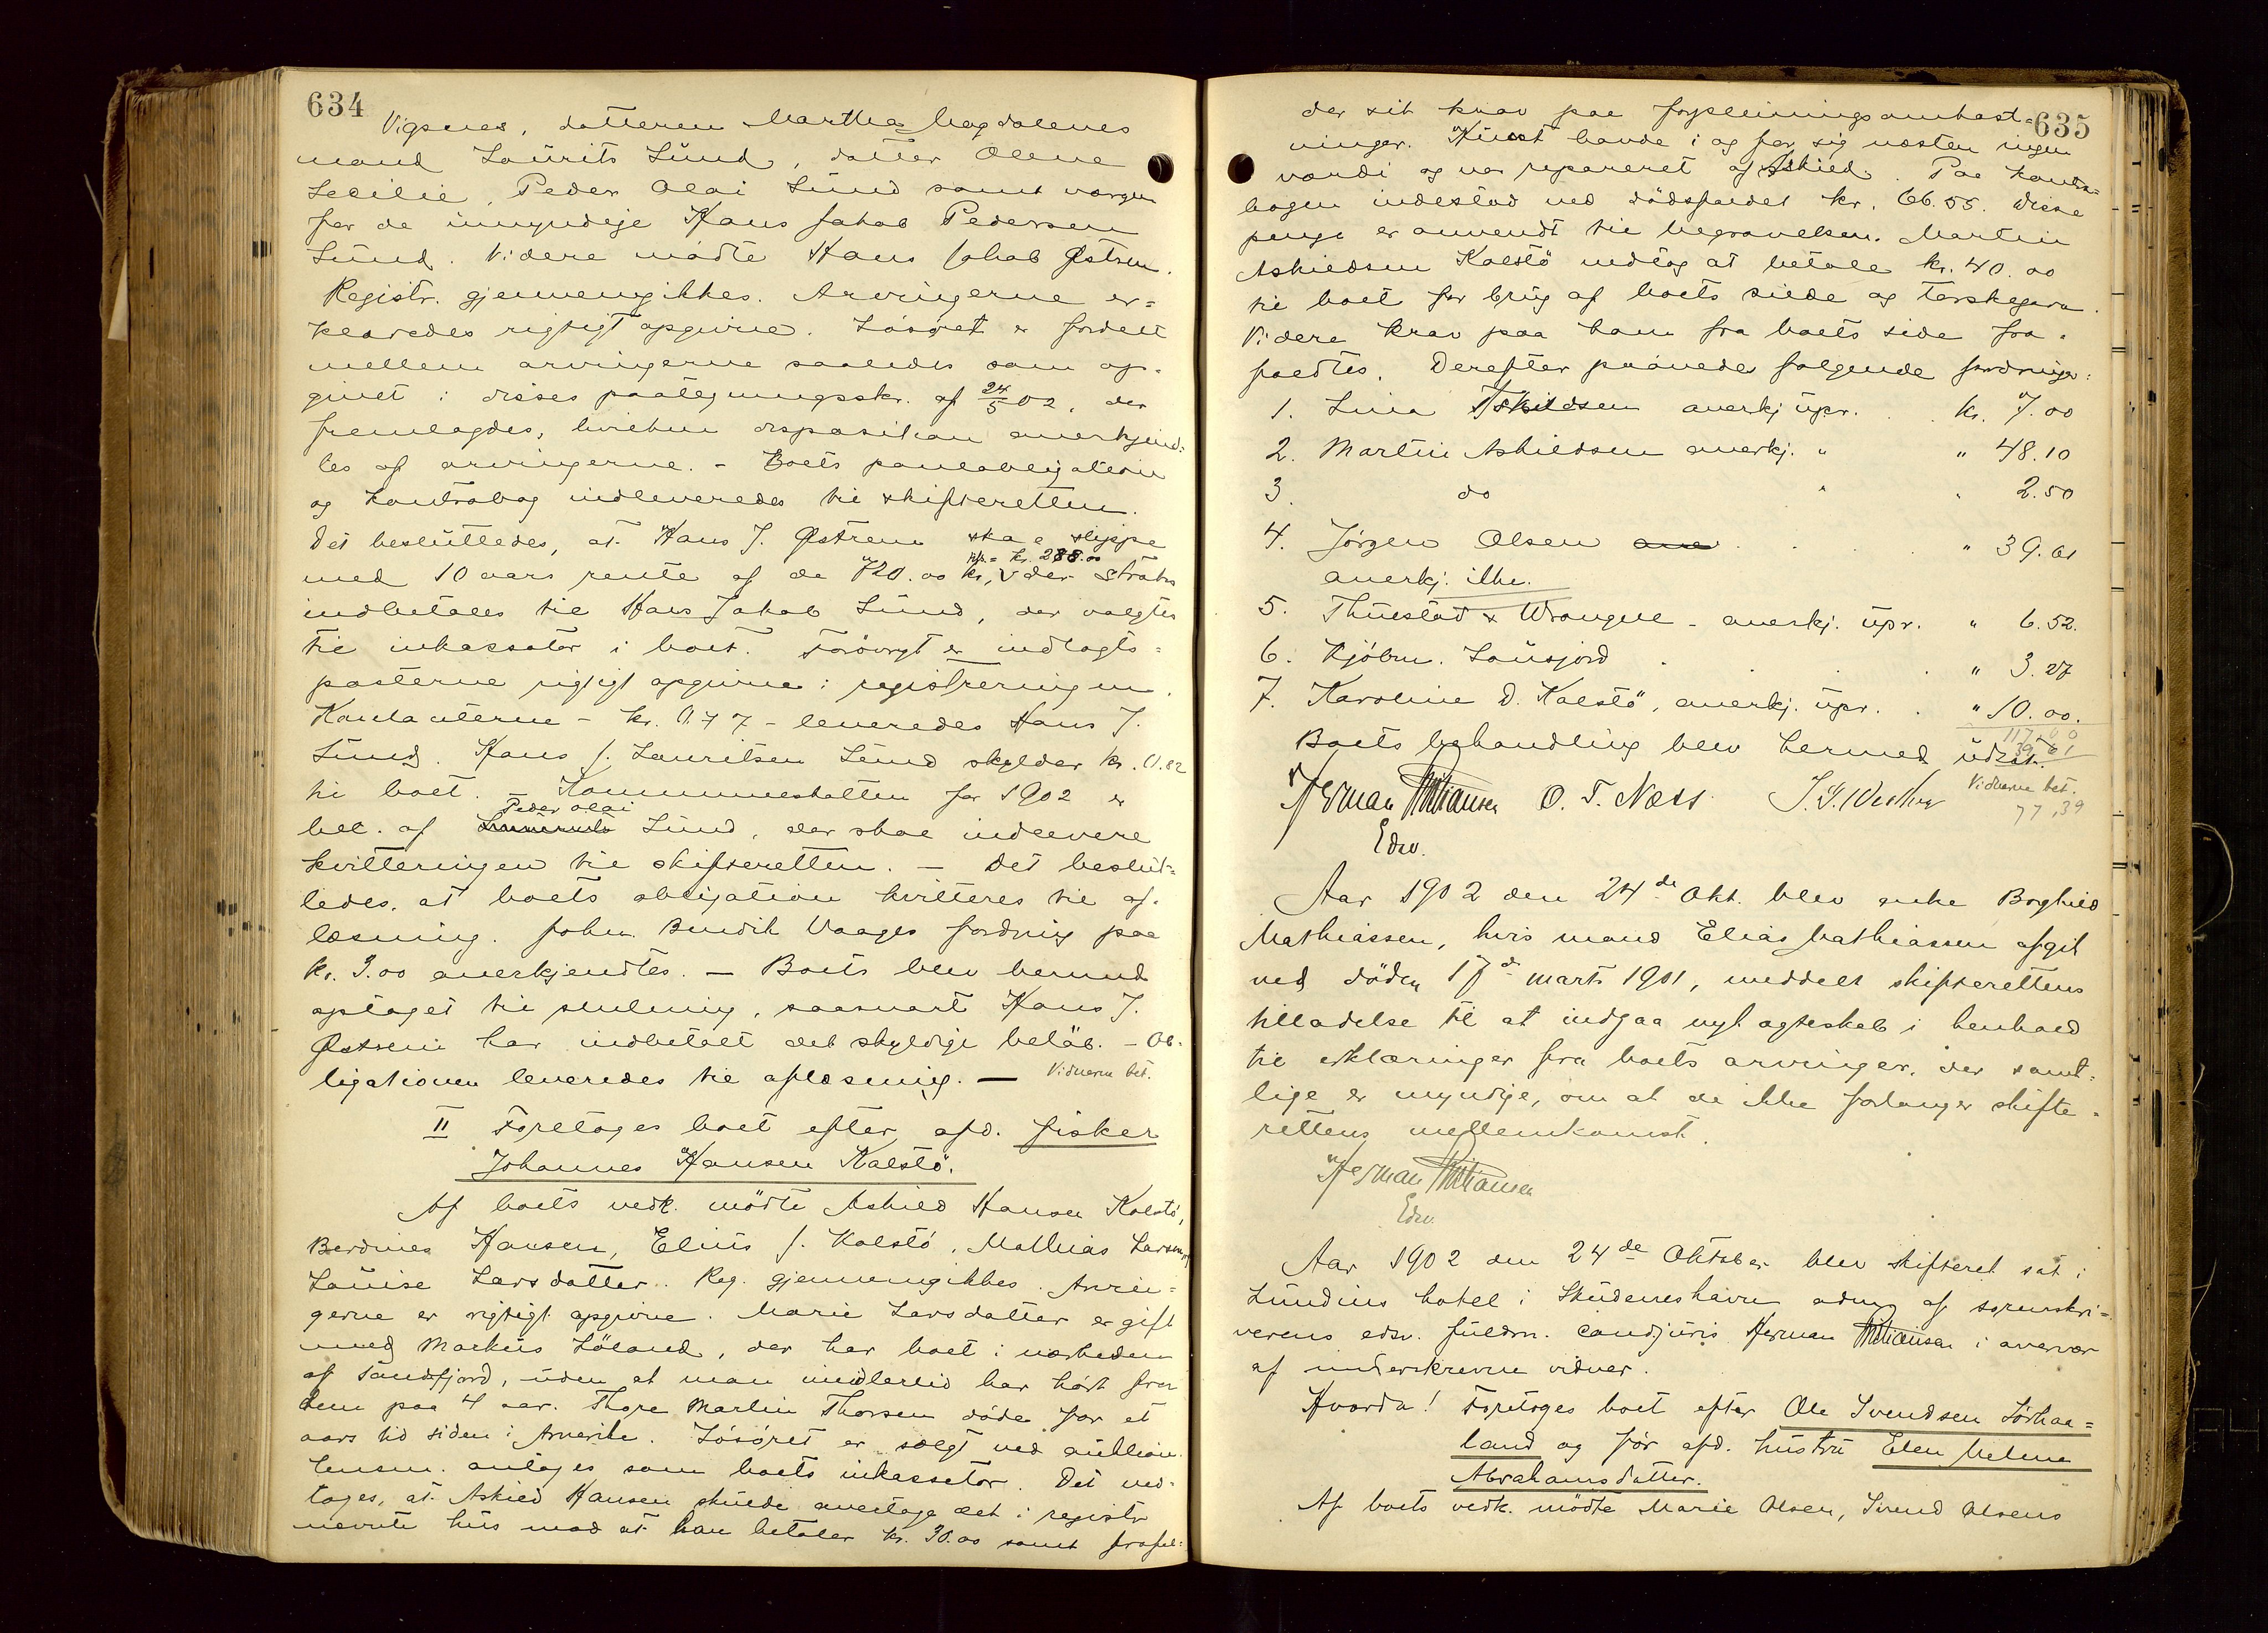 634
Vigsnes, datteren Martha Magdalenes
mand Laurits Lund, datter Olene
Secilie, Peder Olai Lund samt værgen
for de umyndige Hans Jakob Pedersen
Lund. Videre mødte Hans Jakob Østrem.
Registr. gjennemgikkes. Arvingerne er=
klæredes rigtigt opgivne. Løsøret er fordelt
mellem arvingerne saaledes som op-
givet i disses paategningsskr. af 24/5 02, der
fremlagdes, hvilken disposition anerkjend-
tes af arvingerne. - Boets panteobligation
og kontrabog indleveredes til skifteretten.
Det besluttedes, at Hans J. Østrem skal slippe
med 10 aars rente af de 720.00 kr, der straks
kr. 288.00
indbetales til Hans Jakob Lund, der valgtes
til inkassator i boet. Forøvrigt er indtægts-
posterne rigtigt opgivne i registreringen.
Kontanterne - kr. 0.77 - leveredes Hans J.
Lund. Hans J. Lauritsen Lund skylder kr. 0.82
til boet. - Kommuneskatten for 1902 er
bet. af Peder Olai Lund, der skal indlevere
kvitteringen til skifteretten. - Det beslut=
tedes, at boets obligation kvitteres til af-
læsning. John Bendik Vaages fordring paa
kr. 3.00 anerkjendtes. - Boets blev hermed
optaget til slutning, saasnart Hans J.
Østrem har indbetalt det skyldige beløb. - Ob-
ligationen leveredes til aflæsning. - Vidnerne bet.
II Foretoges boet efter afd. fisker
Johannes Hansen Kalstø.
Af boets vedk. mødte Askild Hansen Kalstø,
Berdines Hansen, Elius J. Kalstø, Mathias Larsen,
Louise Larsdatter. Reg. gjennemgikkes. Arvin=
gerne er rigtigt opgivne. Marie Larsdatter er gift
med Markus Løland, der har boet i nærheden
af Sandfjord, uden at man imidlertid har hørt fra
dem paa 4 aar. Thore Martin Thorsen døde for et
aars tid siden i Amerika. Løsøret er solgt ved auktion.
Lensm. antoges som boets inkassator. Det ved-
toges, at Askild Hansen skulde overtage det i registr.
nævnte hus mod at han betaler kr. 30.00 samt frafal-
635
der sit krav paa forpleiningsomkost-
ninger. Huset havde i og for sig næsten ingen
værdi og var repareret af Askild. Paa kontra-
bogen indestod ved dødsfaldet kr. 66.55. Disse
penge er anvendt til begravelsen. Martin
Askildsen Kalstø vedtog at betale kr. 40.00
til boet for brug af boets silde og torskegarn.
Videre krav paa ham fra boets side fra-
faldtes. Derefter prøvedes følgende fordringer:
1. Lina Askildsen anerkj. upr. kr. 7.00
2. Martin Askildsen anerkj. " " 48.10
3. do " " 2.50
4. Jørgen Olsen " 39.61
anerkj. ikke.
5. Thuestad & Wrangell - anerkj. upr. " 6.52.
6. Kjøbm. Lausjord " 3.27
7. Karoline D. Kalstø, anerkj. upr. " 10.00.
117.00
39.61
Boets behandling blev hermed udsat.
Herman Christiansen O. T. Næss
Edsv.
Vidnerne bet.
77,39
Aar 1902 den 24de Okt. blev enke Borghild
Mathiassen, hvis mand Elias Mathiassen afgik
ved døden 17de marts 1901, meddelt skifterettens
tilladelse til at indgaa nyt ægteskab i henhold
til erklæringer fra boets arvinger, der samt-
lige er myndige, om at de ikke forlanger skifte-
rettens mellemkomst.
Herman Christiansen
Edsv.
Aar 1902 den 24de Oktober blev skifteret sat i
Lundins hotel i Skudeneshavn adm. af sorenskri-
verens edsv. fuldm. cand. juris Herman Christiansen i overvær
af underskrevne vidner.
Hvorda! Foretoges boet efter Ole Svendsen Sørhaa=
land og før afd. hustru Elen Malene
Abrahamsdatter.
Af boets vedk. mødte Marie Olsen, Svend Olsens